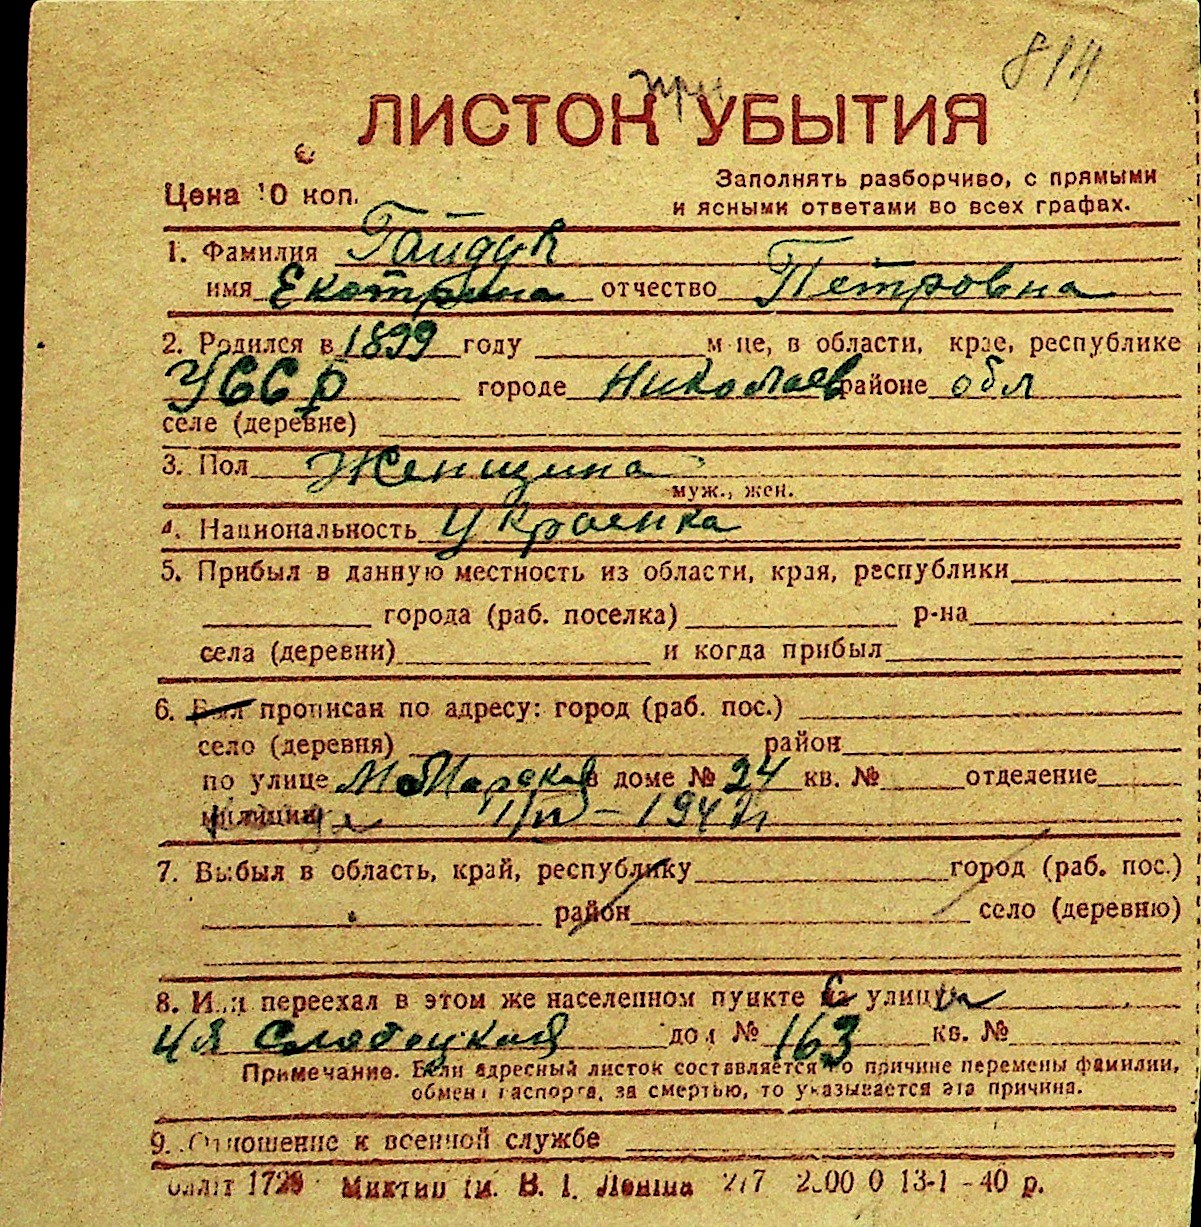 814
при
ЛИСТОК УБЫТИЯ
Цена 10 коп.
Заполнять разборчиво, с прямыми
и ясными ответами во всех графах.
1. Фамилия Гайдук
имя Екатрина отчество Петровна
2. Родился в 1899 году м-це, в области, крае, республике
УССР городе Николаев районе обл
селе (деревне)
3. Пол Женщина
муж., жен.
4. Национальность Украенка
5. Прибыл в данную местность из области, края, республики
города (раб. поселка) р-на
села (деревни) и когда прибыл
6. Был прописан по адресу: город (раб. пос.)
село (деревня) район
по улице М Морская в доме № 24 кв. № отделение
милиции 1/IV – 1942
7. Выбыл в область, край, республику город (раб. пос.)
район село (деревню)
8. Или переехал в этом же населенном пункте с улицы
4я Слабоцкая дом № 163 кв. №
Примечание. Если адресный листок составляется по причине перемены фамилии,
обмена паспорта, за смертью, то указывается эта причина.
9. Отношение к военной службе
1729 Миктип ім. В. І. Леніна 13-1 - 40 р.